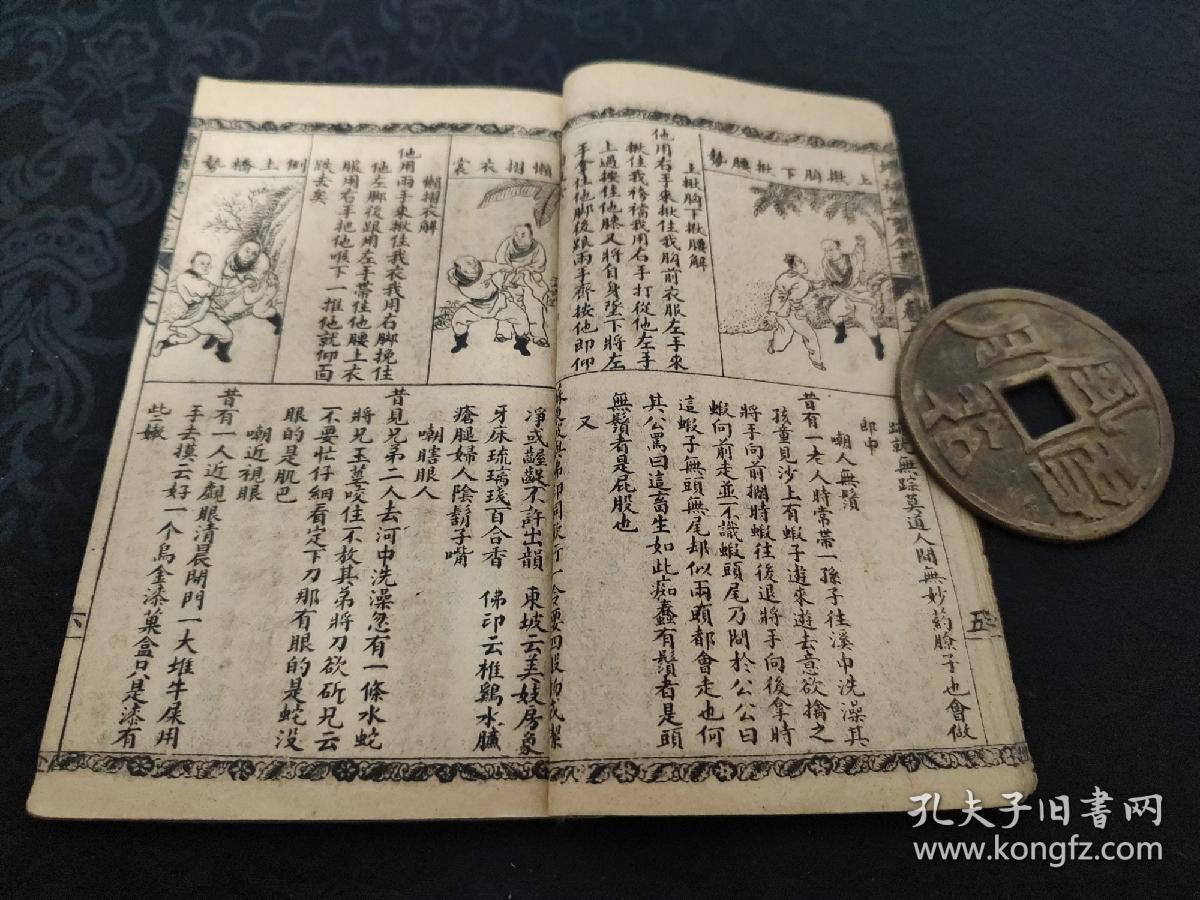 上揪胸下揪腰勢
上揪胸下揪腰解
他用右手來揪住我胸前衣服左手來
揪住我袴襠我用右手打從他左手
上過按住他膝又將自身墜下將左
手拿住他脚後跟兩手齊按他即仰
懶摺衣裳
懶摺衣解
他用兩手來揪住我衣我用右脚挽住
他左脚後跟用左手帶住他腰上衣
服用右手把他喉下一推他就仰面
跌去矣
倒上橋勢
無踪莫道人間無妙药臉子也會做
郎中
嘲人無鬚
昔有一老人時常帶一孫子往溪中洗澡其
孩童見沙上有蝦子遊來遊去意欲擒之
將手向前攔時蝦往後退將手向後拿時
蝦向前走並不識蝦頭尾乃問於公公曰
這蝦子無頭無尾却似兩頭都會走也何
其公罵曰這畜生如此痴蠢有鬚者是頭
無鬚者是屁股也
又
五
淨或齷齪不許出韻 東坡云美妓房象
牙床琉璃琖百合香 佛印云椎鷄水臟
瘡腿婦人陰鬍子嘴
嘲瞎眼人
昔見兄弟二人去河中洗澡忽有一條水蛇
將兄玉莖咬住不放其弟將刀欲斫兄云
不要忙仔細看定下刀那有眼的是蛇没
眼的是肌巴
嘲近視眼
昔有一人近覷眼清晨開門一大堆牛屎用
手去摸云好一个烏金漆菓盒只是漆有
些嫩
六
孔夫子旧书网
www.kongfz.com